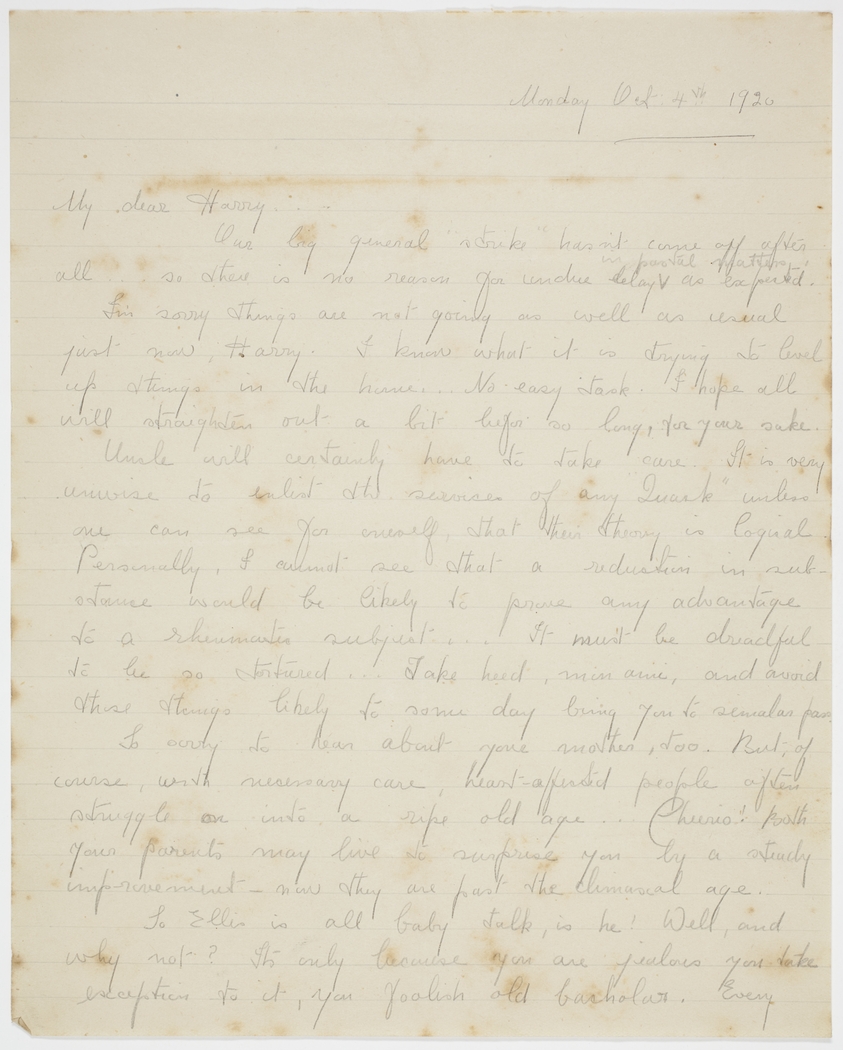 Monday Oct 4th 1920
My dear Harry. . . .
Our big general "strike" hasn't come off after
in postal matters,
all . . . so there is no reason for undue delay as expected.
I'm sorry things are not going as well as usual
just now, Harry. I know what it is trying to level
up things in the home. . . No easy task. I hope all
will straighten out a bit befor so long, for your sake.
Uncle will certainly have to take care. It is very
unwise to enlist the services of any "Quack" unless
one can see for oneself, that their theory is logical.
Personally, I cannot see that a reduction in sub-
stance would be likely to prove any advantage
to a rheumatic subject . . . It must be dreadful
to be so tortured . . . Take heed, mon ami, and avoid
those things likely to some day bring you to similar pass.
So sorry to hear about your mother, too. But, of
course, with necessary care, heart-affected people often
struggle on into a ripe old age . . Cheerio! Both
your parents may live to surprise you by a steady
improvement - now they are past the climascal age.
So Ellis is all baby talk, is he! Well, and
why not? Its only because you are jealous you take
exception to it, you foolish old bachelor. Every